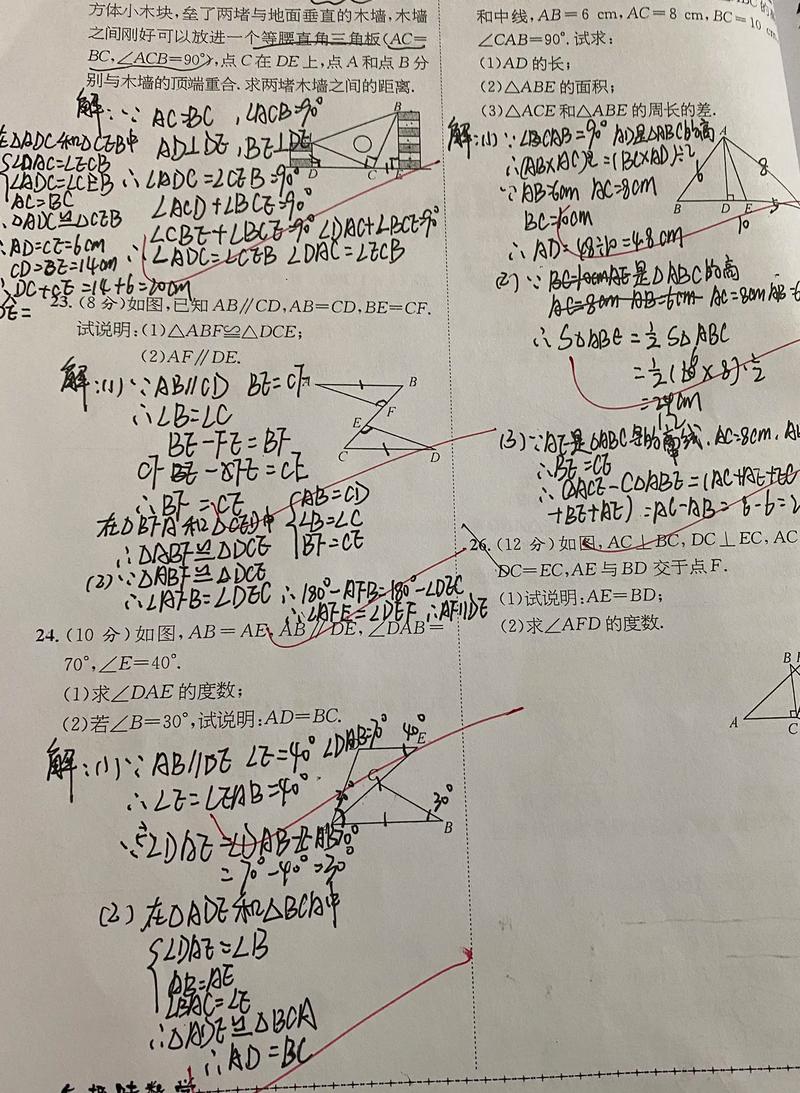 方体小木块,垒了两堵与地面垂直的木墙,木墙
之间刚好可以放进一个等腰直角三角板(AC=
BC,∠ACB=90°),点C在DE上,点A和点B分
别与木墙的顶端重合.求两堵木墙之间的距离.
解:∵ AC=BC,∠ACB=90°
AD⊥DE,BE⊥DE
∴∠ADC=∠CEB=90°
∠ACD+∠BCE=90°
∠CBE+∠BCE=90° ∠DAC+∠BCE=90°
∴∠ADC=∠CEB ∠DAC=∠ECB
在△ADC和△CEB中
∠DAC=∠ECB
∠ADC=∠CEB
AC=BC
△ADC≌△CEB
∴AD=CE=6cm
CD=BE=14cm
∴DC+CE=14+6=20cm
DE=
B
D
C
E
23.(8分)如图,已知AB∥CD,AB=CD,BE=CF.
试说明:(1)△ABF≌△DCE;
(2)AF∥DE.
解:(1)∵AB∥CD BE=CF
∴∠B=∠C
BE-FE=BF
CF-FE=CE
∴BF=CE
在△BFA和△CED中
AB=CD
∠B=∠C
BF=CE
∴△ABF≌△DCE
(2)∵△ABF≌△DCE
∴∠AFB=∠DEC ∴180°-AFB=180°-∠DEC
∴∠AFE=∠DEF ∴AF∥DE
B
F
E
C
D
24.(10分)如图,AB=AE,AB∥DE,∠DAB=
70°,∠E=40°.
(1)求∠DAE的度数;
(2)若∠B=30°,试说明:AD=BC.
解:(1)∵AB∥DE ∠E=40° ∠DAB=70°
∴∠E=∠EAB=40°
∵∠DAE=∠DAB-∠EAB
=70°-40°=30°
(2)在△ADE和△BCA中
∠DAE=∠B
AB=AE
∠BAC=∠E
∴△ADE≌△BCA
∴AD=BC
40°
E
C
30°
B
和中线,AB=6 cm,AC=8 cm,BC=10 cm,
∠CAB=90°.试求:
(1)AD的长;
(2)△ABE的面积;
(3)△ACE和△ABE的周长的差.
解:(1)∵∠BCAB=90° AD是△ABC的高
∴(AB×AC)÷2=(BC×AD)÷2
∵AB=6cm AC=8cm
BC=10cm
∴AD=48÷10=4.8cm
A
6
8
B
D
E
10
5
(2)∵BC=10cm AE是△ABC的高
AC=8cm AB=6cm AC=8cm AB=6
∴S△ABE=½S△ABC
=½(6×8)·½
=24cm
12
(3)∵AE是△ABC的中线,AC=8cm,
∴BE=CE
∴C△ACE-C△ABE=(AC+AE+EC
+BE+AE)=AC-AB=8-6=2
26.(12分)如图,AC⊥BC,DC⊥EC,AC
DC=EC,AE与BD交于点F.
(1)试说明:AE=BD;
(2)求∠AFD的度数.
B
A
C